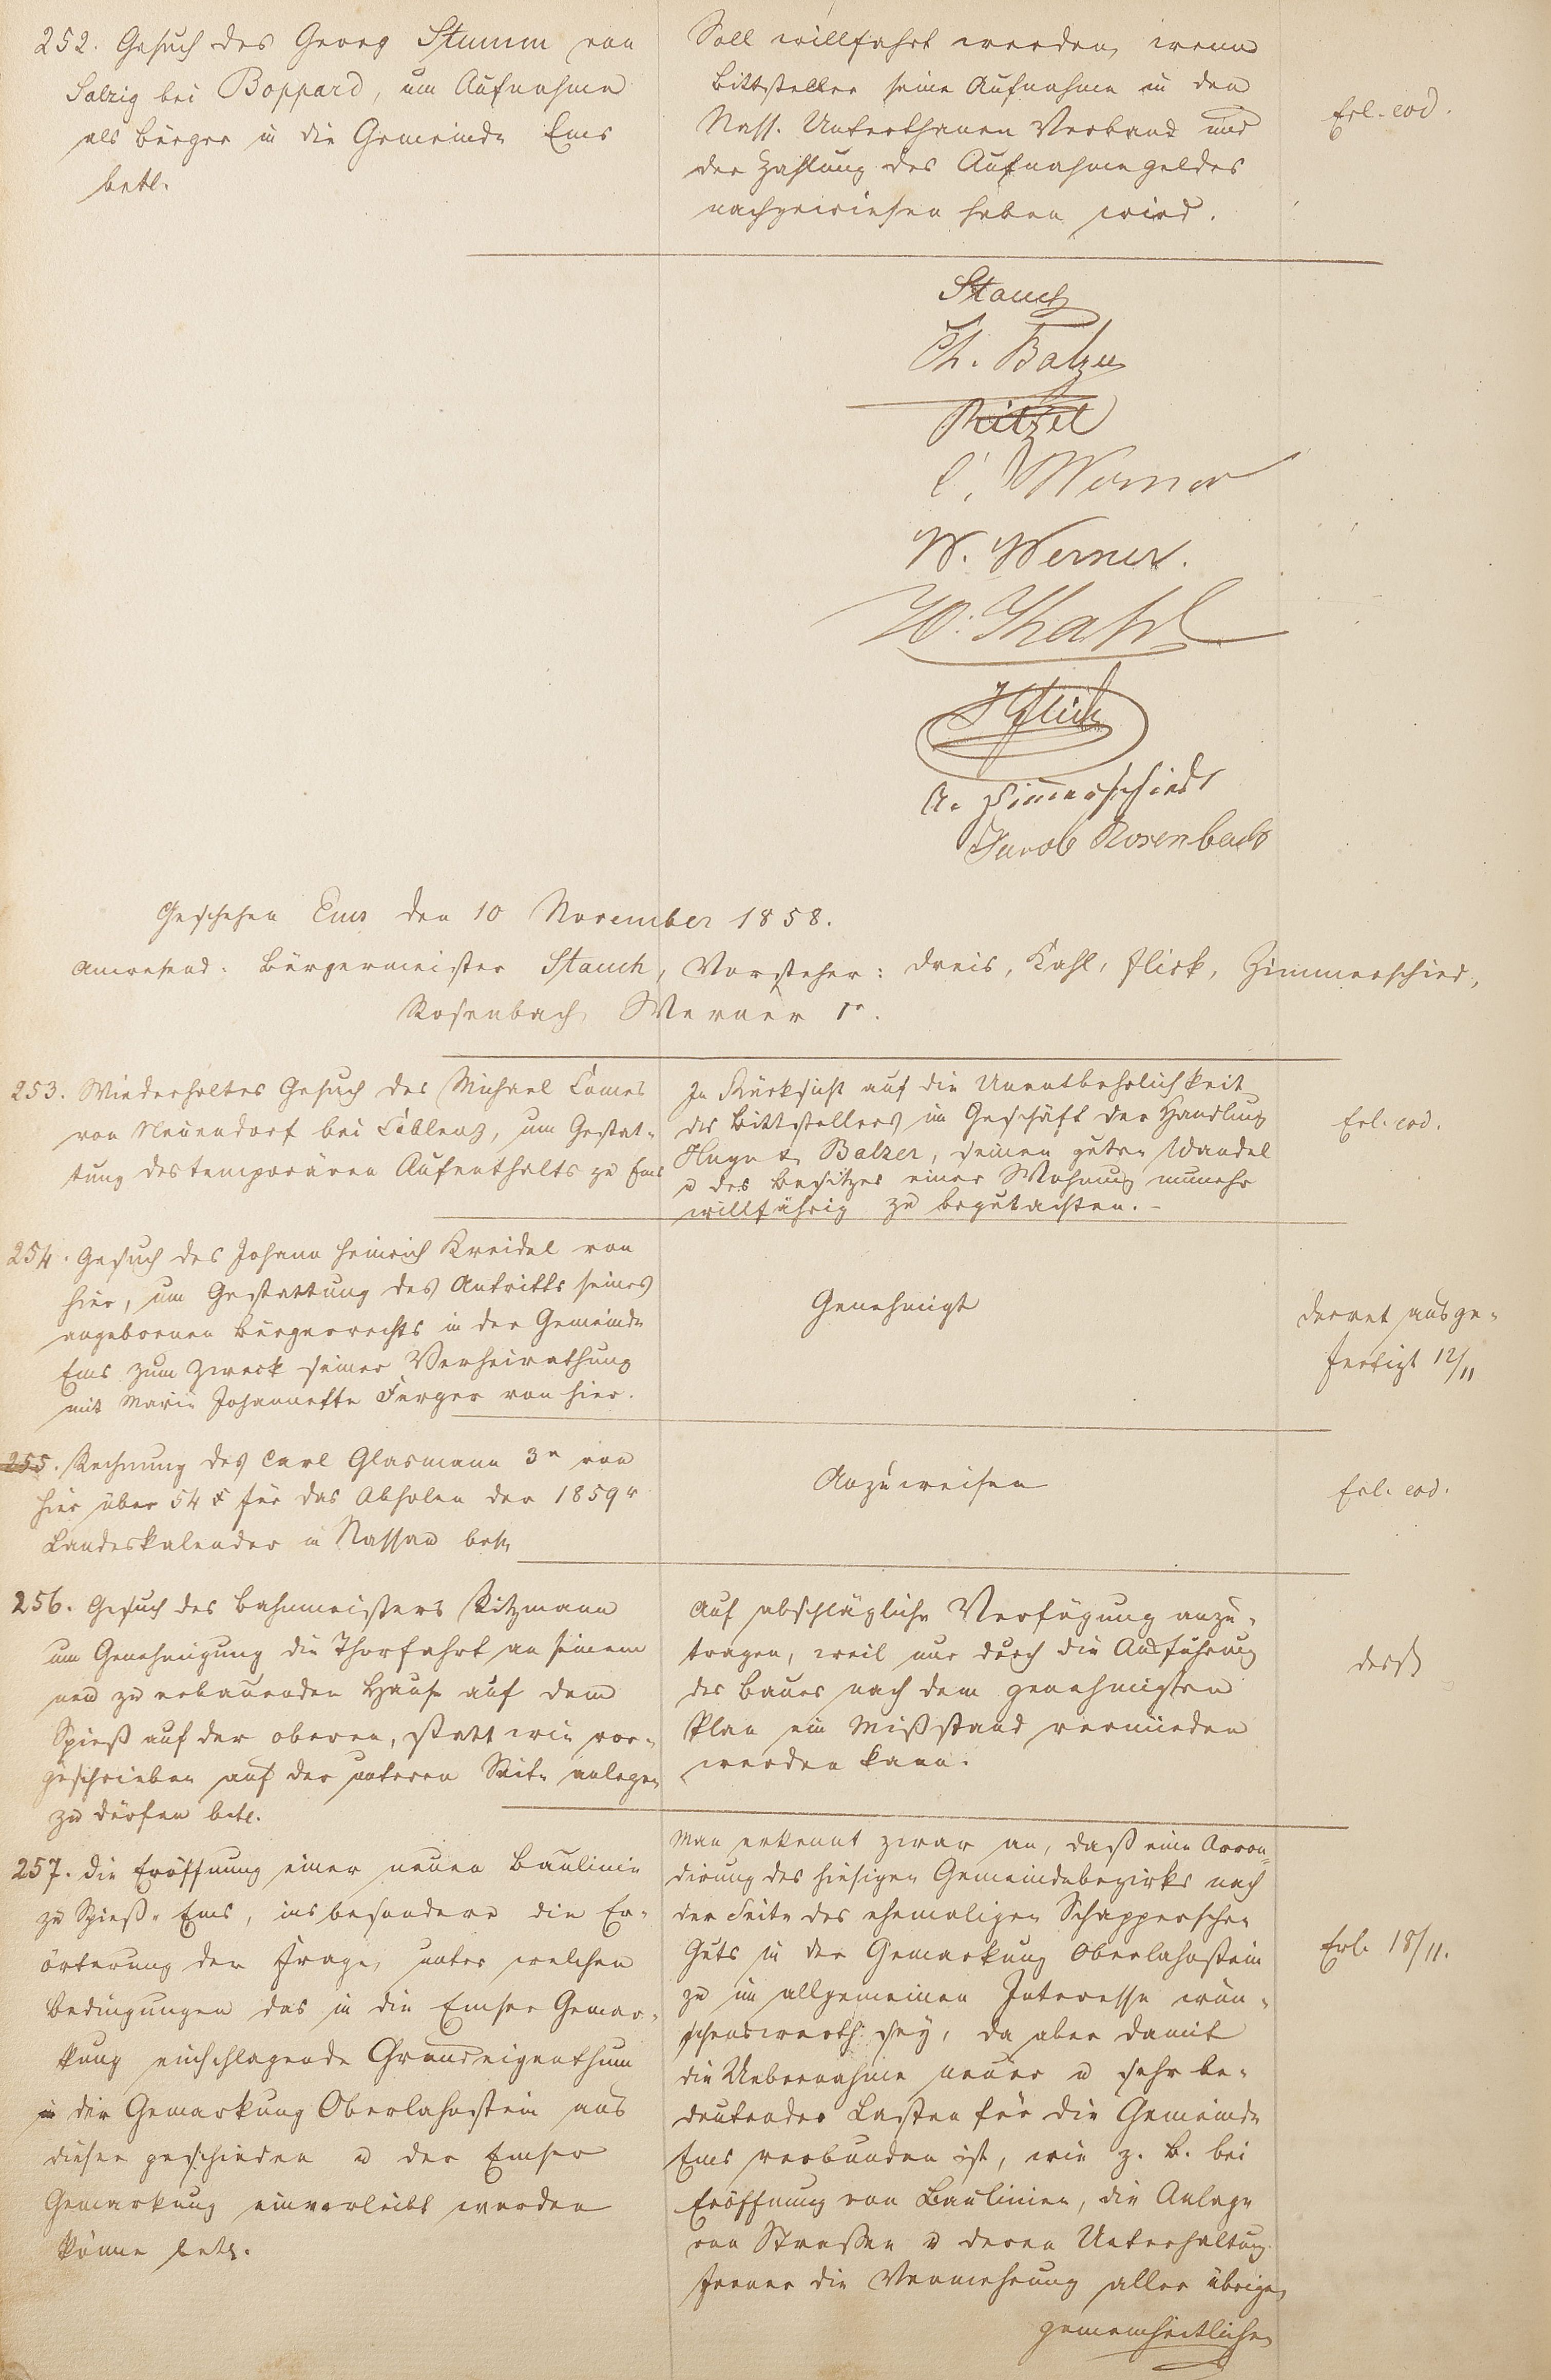 252. Gesuch des Georg Stumm von
Salzig bei Boppard, um Aufnahme
als Bürger in die Gemeinde Ems
betr.
Soll willfahrt werden, wenn
Bittsteller seine Aufnahme in den
Nass. Unterthanen Verband und
der Zahlung des Aufnahmegeldes
nachgewiesen haben wird.
Erl. eod.
Stauch
Ch. Balzer
Ritzel
C. Werner
W. Werner.
W. Kahl
Flick
A. Zimmerschied
Jacob Rosenbach
Geschehen Ems den 10 November 1858.
Anwesend: Bürgermeister Stauch, Vorsteher: Dreis, Kahl, Flick, Zimmerschied,
Rosenbach, Werner 1r.
253. Wiederholtes Gesuch des Michael Comes
von Neuendorf bei Coblenz, um Gestat-
tung des temporären Aufenthalts zu Ems
In Rücksicht auf die Unentbehrlichkeit
des Bittstellers im Geschäft der Handlung
Huyn & Balzer, seinen guten Wandel
u des Besitzes einer Wohnung nunmehr
willfährig zu begutachten. -
Erl. eod.
254. Gesuch des Johann Heinrich Kreidel von
hier, um Gestattung des Antritts seines
angebornen Bürgerrechts in der Gemeinde
Ems zum Zweck seiner Verheirathung
mit Marie Johannette Ferger von hier.
Genehmigt
Decret ausge-
fertigt 12/11
255. Rechnung des Carl Glasmann 3r von
hier über 54 x für das Abholen der 1859r
Landeskalender in Nassau betr.
Anzuweisen
Erl. eod.
256. Gesuch des Bahnmeisters Ritzmann
um Genehmigung die Thorfahrt an seinem
neu zu erbauenden Hause auf dem
Spieß auf der oberen, statt wie vor-
geschrieben auf der unteren Seite anlegen
zu dürfen betr.
Auf abschlägliche Verfügung anzu-
tragen, weil nur durch die Ausführung
des Baues nach dem genehmigten
Plan ein Mißstand vermieden
werden kann.
257. Die Eröffnung einer neuen Baulinie
zu Spieß-Ems, insbesondere die Er-
örterung der Frage, unter welchen
Bedingungen das in die Emser Gemar-
kung einschlagende Grundeigenthum
in der Gemarkung Oberlahnstein aus
dieser geschieden u der Emser
Gemarkung einverleibt werden
könne betr.
Man erkennt zwar an, daß eine Arron-
dirung des hiesigen Gemeindebezirks nach
der Seite des ehemaligen Schapperschen
Guts in der Gemarkung Oberlahnstein
zu im allgemeinen Interesse wün-
schenswerth sey, da aber damit
die Uebernahme neuer u sehr be-
deutender Lasten für die Gemeinde
Ems verbunden ist, wie z. B. bei
Eröffnung von Baulinien, die Anlage
von Strassen u deren Unterhaltung
ferner die Vermehrung aller übrigen
gemeinheitlichen
Erl. 18/11.